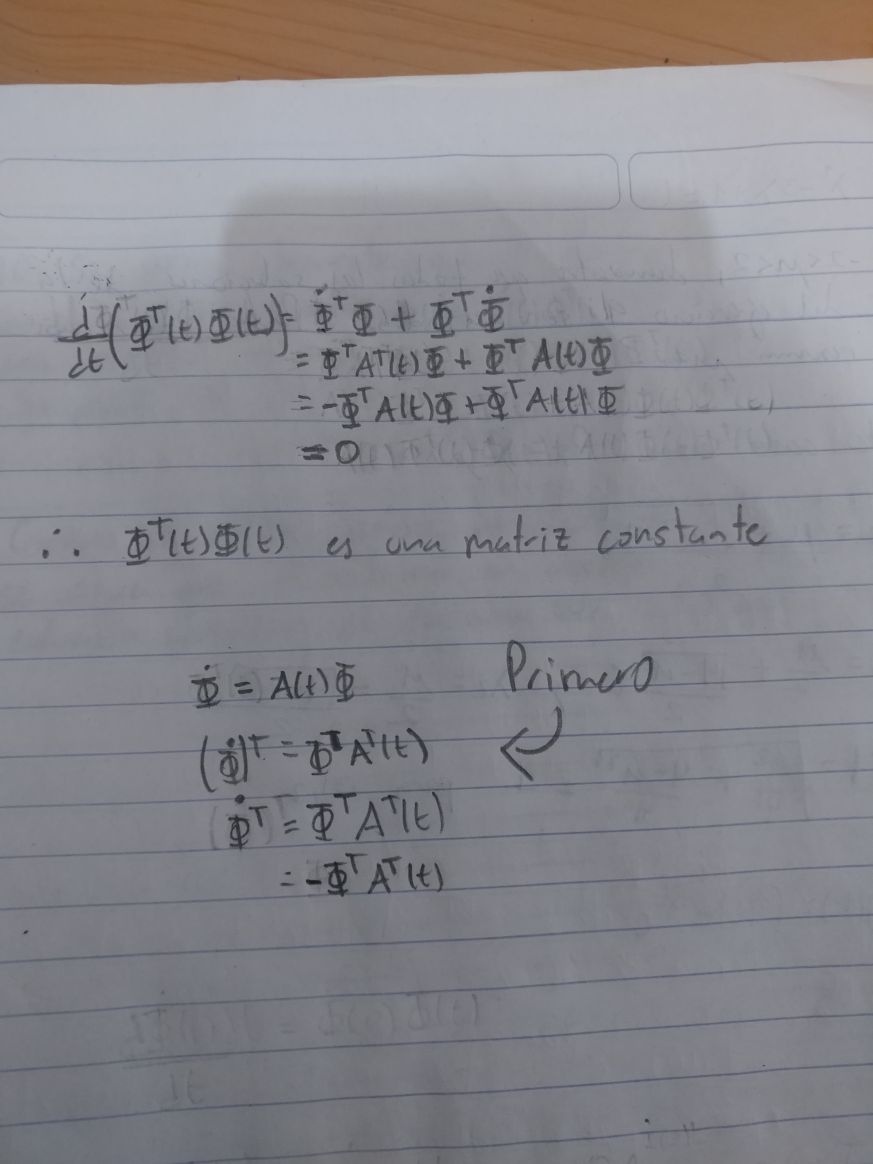 d/dt (Φᵀ(t) Φ(t)) = Φ̇ᵀΦ + ΦᵀΦ̇
= ΦᵀAᵀ(t)Φ + ΦᵀA(t)Φ
= -ΦᵀA(t)Φ + ΦᵀA(t)Φ
= 0
∴ Φᵀ(t)Φ(t) es una matriz constante
Φ̇ = A(t)Φ
Primero
(Φ̇)ᵀ = ΦᵀAᵀ(t)
Φ̇ᵀ = ΦᵀAᵀ(t)
= -ΦᵀAᵀ(t)